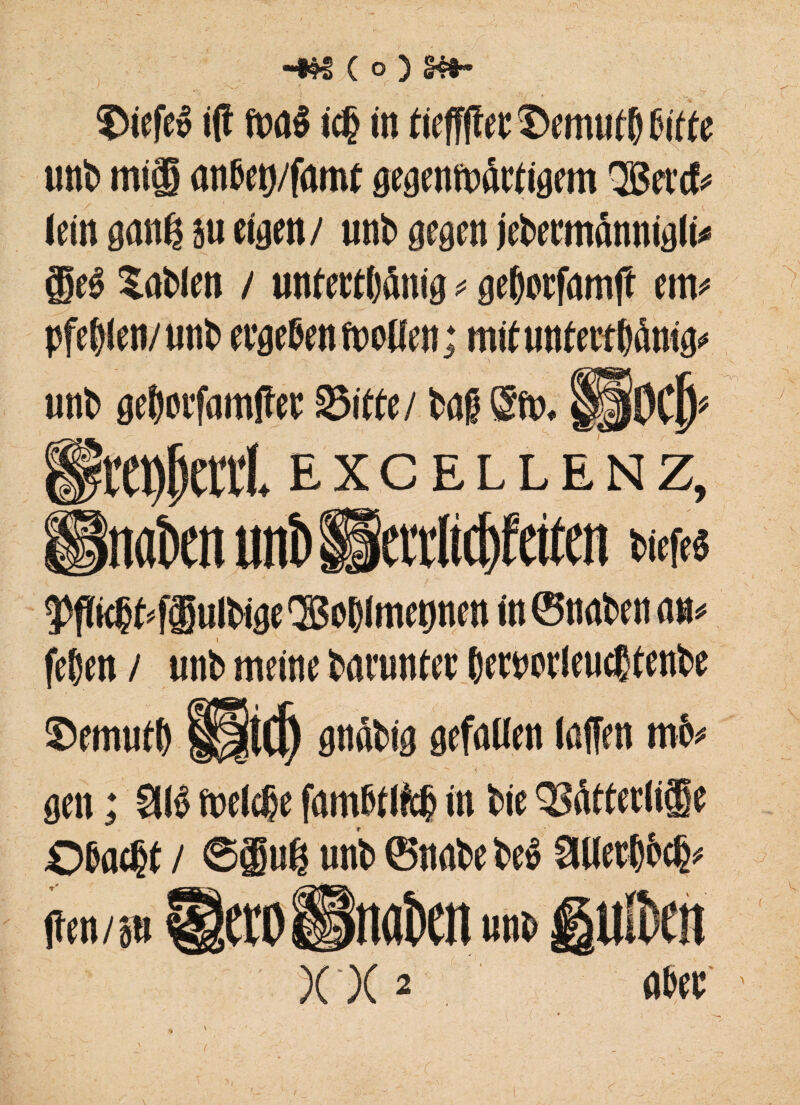 ( o )
Dieses ist was ich in tieffster Demuth bitte
und mich anbey/samt gegenwärtigem Werck-
lein gantz zu eigen / und gegen jedermännigli-
ches Tadlen / unterthänig-gehorsamst em-
pfehlen/und ergeben wollen; mit unterthänig-
und gehorsamster Bitte/ daß Ew. Hoch-
Freyherrl. EXCELLENZ,
Gnaden und Herrlichkeiten dieses
Pflicht-schuldige Wohlmeynen in Gnaden an-
sehen / und meine darunter hervorleuchtende
Demuth Sich gnädig gefallen lassen mö-
gen; Als welche sambtlich in die Vätterliche
Obacht / Schutz und Gnade des Allerhöch-
sten/zu Dero Gnaden und Hulden
)( )( 2 aber